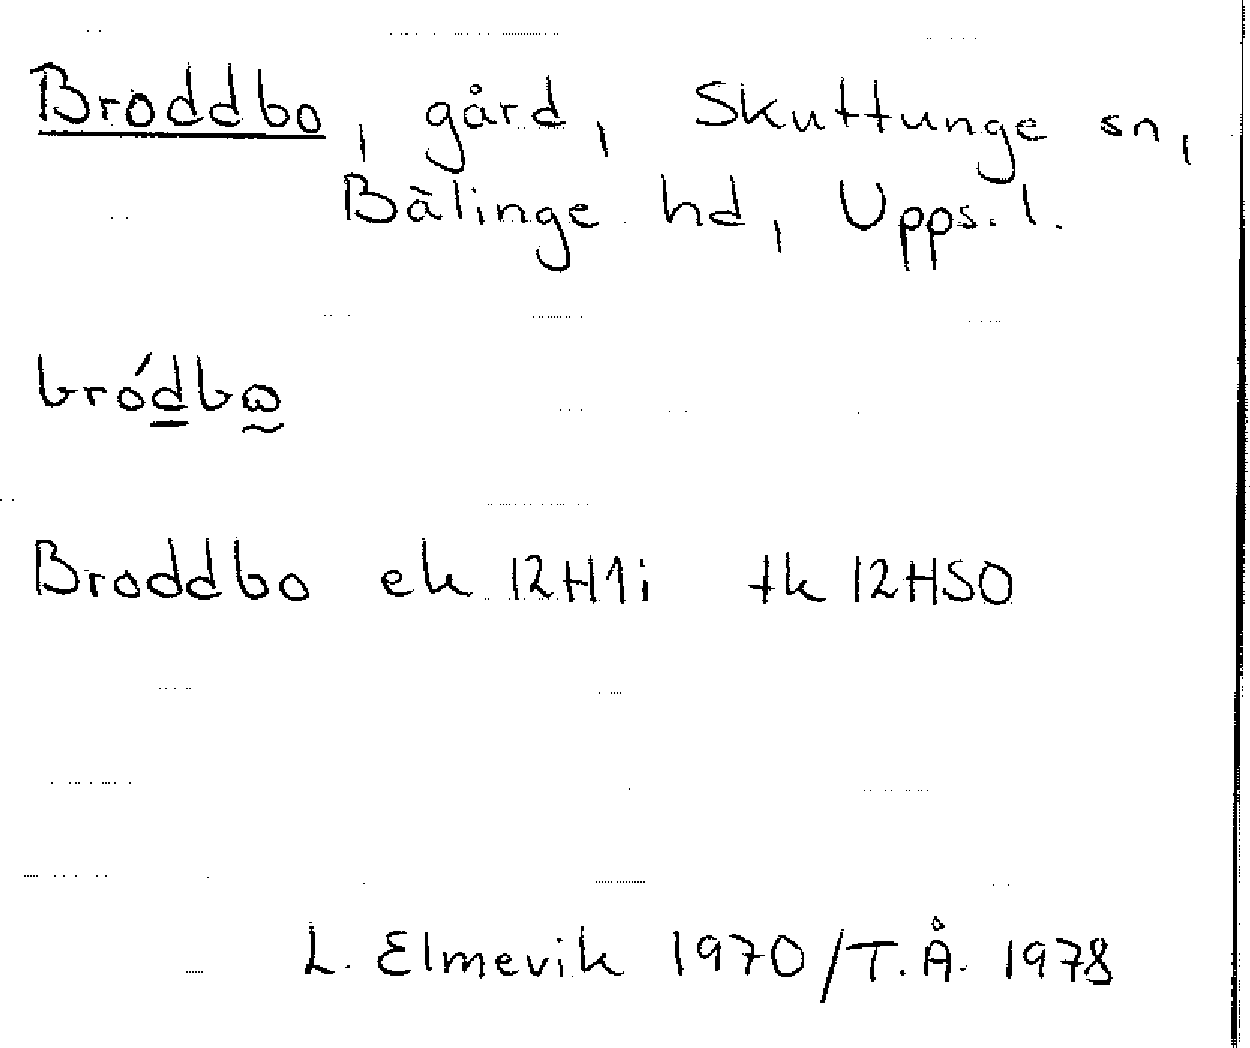 Broddbo, gård, Skuttunge sn,
Bälinge hd, Upps. l.
bródbω
Broddbo ek 12H1i tk 12HSO
L. Elmevik 1970/T.Å. 1978